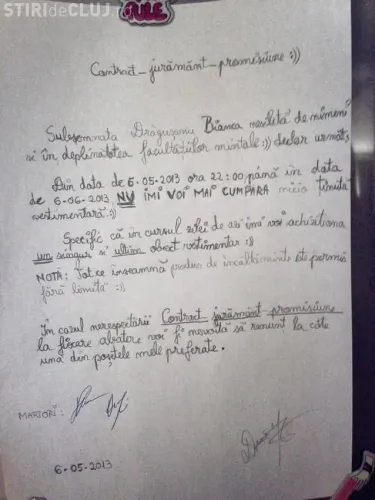 STIRIdeCLUJ
Contract_jurământ_promisiune :))
Subsemnata Drăgușanu Bianca nesilită de nimeni
și în deplinătatea facultăților mintale :)) declar următ.
Din data de 6-05-2013 ora 22:00 până în data
de 6-06-2013 NU ÎMI VOI MAI CUMPARA nicio ținută
vestimentară :)
Specific că în cursul zilei de azi îmi voi achiziționa
un singur și ultim obiect vestimentar :))
NOTĂ: Tot ce înseamnă produs de încălțăminte este permis
fără limită :))
În cazul nerespectării Contract jurământ promisiune
la fiecare abatere voi fi nevoită să renunț la câte
una din poșetele mele preferate.
MARTORI:
6-05-2013